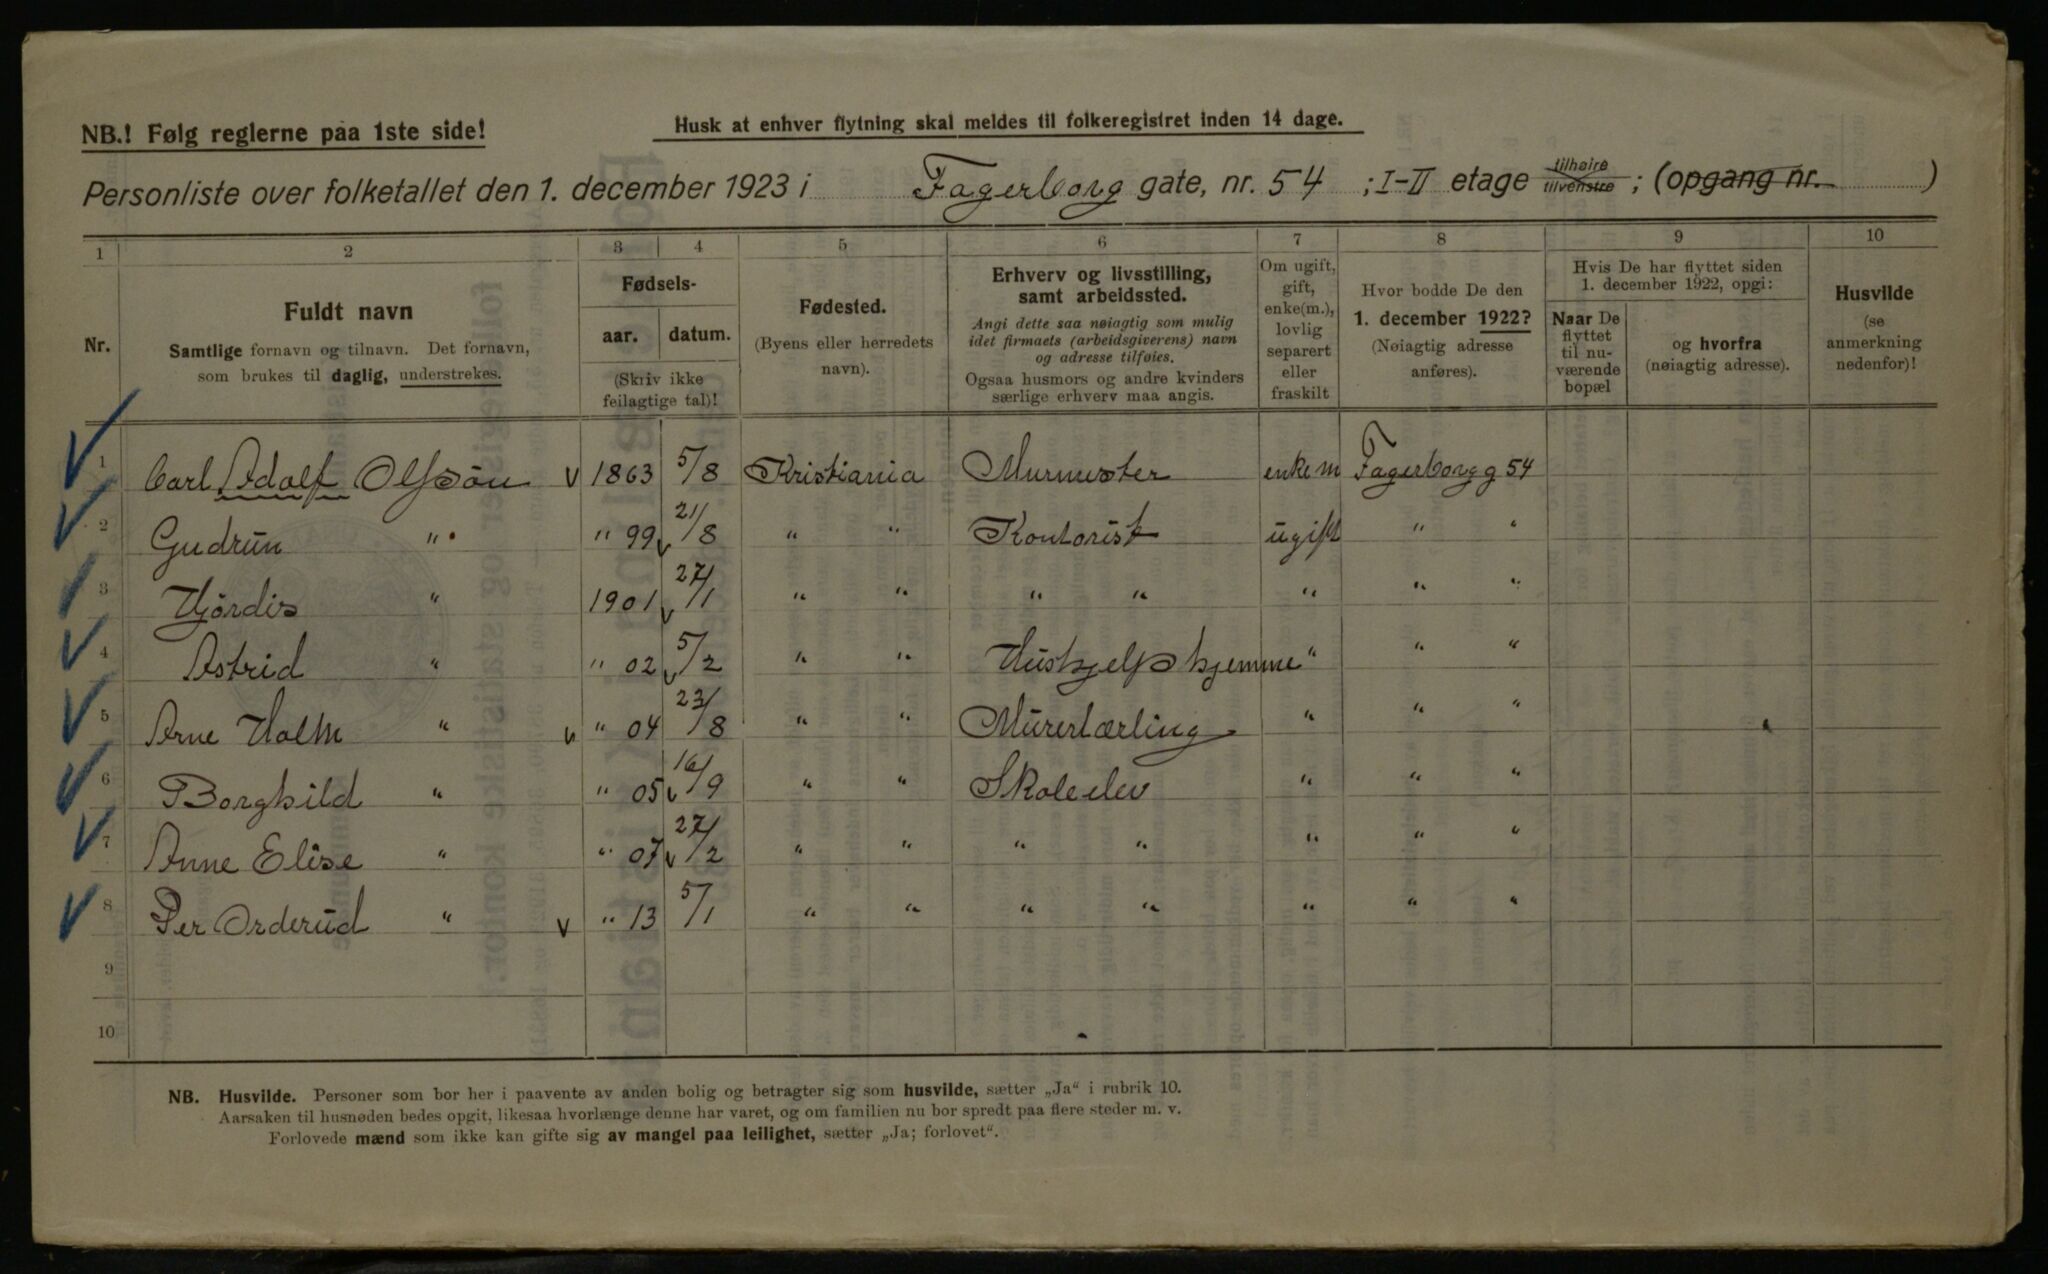 NB.! Følg reglerne paa 1ste side!
Husk at enhver flytning skal meldes til folkeregistret inden 14 dage.
Personliste over folketallet den 1. december 1923 i Fagerborg gate, nr. 54 ; I-II etage tilhøire tilvenstre ; (opgang nr. )
1 2 3 4 5 6 7 8 9 10
Nr.
Fuldt navn
Samtlige fornavn og tilnavn. Det fornavn,
som brukes til daglig, understrekes.
Fødsels-
aar. datum.
(Skriv ikke
feilagtige tal)!
Fødested.
(Byens eller herredets
navn).
Erhverv og livsstilling,
samt arbeidssted.
Angi dette saa nøiagtig som mulig
idet firmaets (arbeidsgiverens) navn
og adresse tilføies.
Ogsaa husmors og andre kvinders
særlige erhverv maa angis.
Om ugift,
gift,
enke(m.),
lovlig
separert
eller
fraskilt
Hvor bodde De den
1. december 1922?
(Nøiagtig adresse
anføres).
Hvis De har flyttet siden
1. december 1922, opgi:
Naar De
flyttet
til nu-
værende
bopæl
og hvorfra
(nøiagtig adresse).
Husvilde
(se
anmerkning
nedenfor)!
1 Carl Adolf Olsson v 1863 5/8 Kristiania Murmester enkem Fagerborg g 54
2 Gudrun " " 99 v 21/8 " " Kontorist ugift " "
3 Hjördis " 1901 v 27/1 " " " " " " "
4 Astrid " " 02 v 5/2 " " Huskjelp hjemme " " "
5 Arne Holm " v " 04 23/8 " " Murerlærling " " "
6 Borghild " " 05 v 16/9 " " Skoleelev " " "
7 Anne Elise " " 07 v 27/2 " " " " " " "
8 Per Orderud " v " 13 5/1 " " " " " " "
9
10
NB. Husvilde. Personer som bor her i paavente av anden bolig og betragter sig som husvilde, sætter „Ja“ i rubrik 10.
Aarsaken til husnøden bedes opgit, likesaa hvorlænge denne har varet, og om familien nu bor spredt paa flere steder m. v.
Forlovede mænd som ikke kan gifte sig av mangel paa leilighet, sætter „Ja; forlovet“.